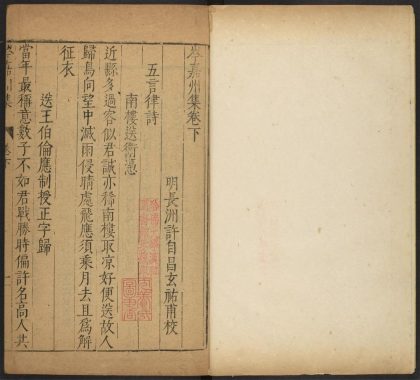 岑嘉州集卷下
明長洲許自昌玄祐甫校
五言律詩
南樓送衛憑
近縣多過客似君誠亦稀南樓取凉好便送故人
歸鳥向望中滅雨侵晴處飛應須乘月去且爲解
征衣
送王伯倫應制授正字歸
當年最稱意數子不如君戰勝時偏許名高人共